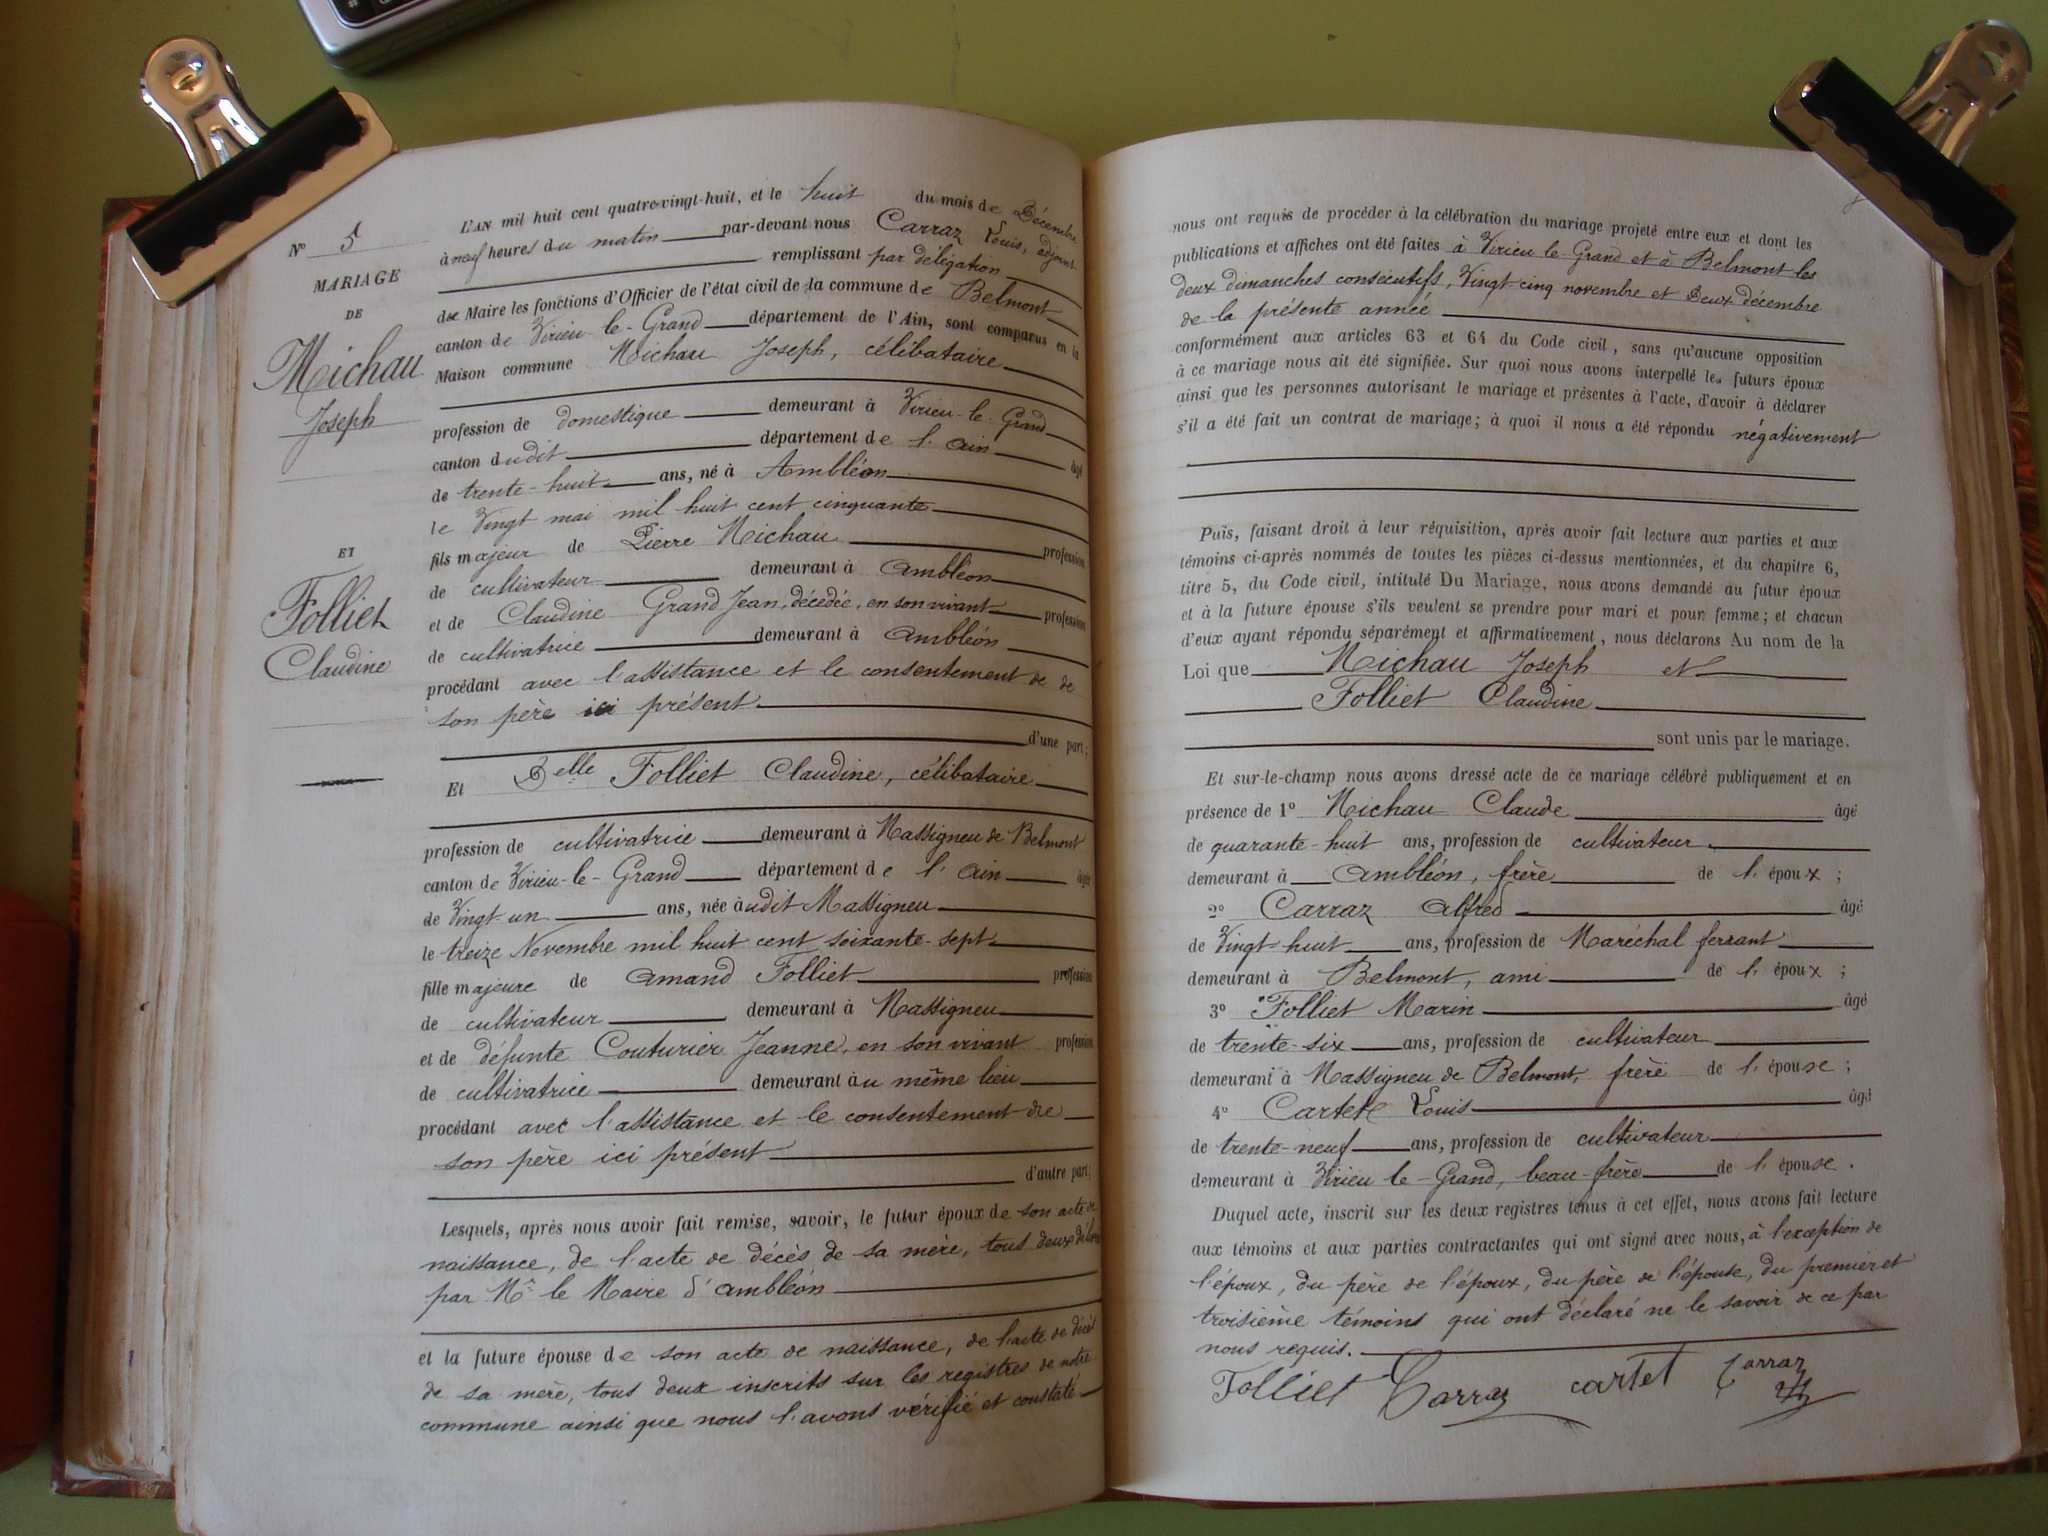 N° 5
MARIAGE
DE
Michau
Joseph
ET
Folliet
Claudine
L'AN mil huit cent quatre-vingt-huit, et le huit du mois de Décembre
à neuf heures du matin par-devant nous Carraz Louis, adjoint
remplissant par délégation
de Maire les fonctions d'Officier de l'état civil de la commune de Belmont
canton de Virieu-le-Grand département de l'Ain, sont comparus en la
Maison commune Michau Joseph, célibataire
profession de domestique demeurant à Virieu-le-Grand
canton dudit département de l'ain âgé
de trente-huit ans, né à Ambléon
le vingt mai mil huit cent cinquante
fils majeur de Pierre Michau profession
de cultivateur demeurant à Ambléon
et de Claudine Grand Jean, décédée, en son vivant profession
de cultivatrice demeurant à Ambléon
procédant avec l'assistance et le consentement de de
son père ici présent
d'une part;
Et Delle Folliet Claudine, célibataire
profession de cultivatrice demeurant à Massigneu de Belmont
canton de Virieu-le-Grand département de l'ain âgée
de vingt un ans, née audit Massigneu
le treize Novembre mil huit cent soixante-sept
fille majeure de Amand Folliet profession
de cultivateur demeurant à Massigneu
et de défunte Couturier Jeanne, en son vivant profession
de cultivatrice demeurant au même lieu
procédant avec l'assistance et le consentement de
son père ici présent
d'autre part;
Lesquels, après nous avoir fait remise, savoir, le futur époux de son acte de
naissance, de l'acte de décès de sa mère, tous deux délivrés
par Mr le Maire d'Ambléon
et la future épouse de son acte de naissance, de l'acte de décès
de sa mère, tous deux inscrits sur les registres de notre
commune ainsi que nous l'avons vérifié et constaté
nous ont requis de procéder à la célébration du mariage projeté entre eux et dont les
publications et affiches ont été faites à Virieu-le-Grand et à Belmont les
deux dimanches consécutifs, vingt cinq novembre et deux décembre
de la présente année
conformément aux articles 63 et 64 du Code civil, sans qu'aucune opposition
à ce mariage nous ait été signifiée. Sur quoi nous avons interpellé les futurs époux
ainsi que les personnes autorisant le mariage et présentes à l'acte, d'avoir à déclarer
s'il a été fait un contrat de mariage; à quoi il nous a été répondu négativement
Puis, faisant droit à leur réquisition, après avoir fait lecture aux parties et aux
témoins ci-après nommés de toutes les pièces ci-dessus mentionnées, et du chapitre 6,
titre 5, du Code civil, intitulé Du Mariage, nous avons demandé au futur époux
et à la future épouse s'ils veulent se prendre pour mari et pour femme; et chacun
d'eux ayant répondu séparément et affirmativement, nous déclarons Au nom de la
Loi que Michau Joseph et
Folliet Claudine
sont unis par le mariage.
Et sur-le-champ nous avons dressé acte de ce mariage célébré publiquement et en
présence de 1° Michau Claude âgé
de quarante-huit ans, profession de cultivateur
demeurant à Ambléon, frère de l'époux;
2° Carraz Alfred âgé
de vingt-huit ans, profession de Maréchal ferrant
demeurant à Belmont, ami de l'époux;
3° Folliet Marin âgé
de trente-six ans, profession de cultivateur
demeurant à Massigneu de Belmont, frère de l'épouse;
4° Cartet Louis âgé
de trente-neuf ans, profession de cultivateur
demeurant à Virieu-le-Grand, beau-frère de l'épouse.
Duquel acte, inscrit sur les deux registres tenus à cet effet, nous avons fait lecture
aux témoins et aux parties contractantes qui ont signé avec nous, à l'exception de
l'époux, du père de l'époux, du père de l'épouse, du premier et
troisième témoins qui ont déclaré ne le savoir de ce par
nous requis.
Folliet Carraz cartet Carraz